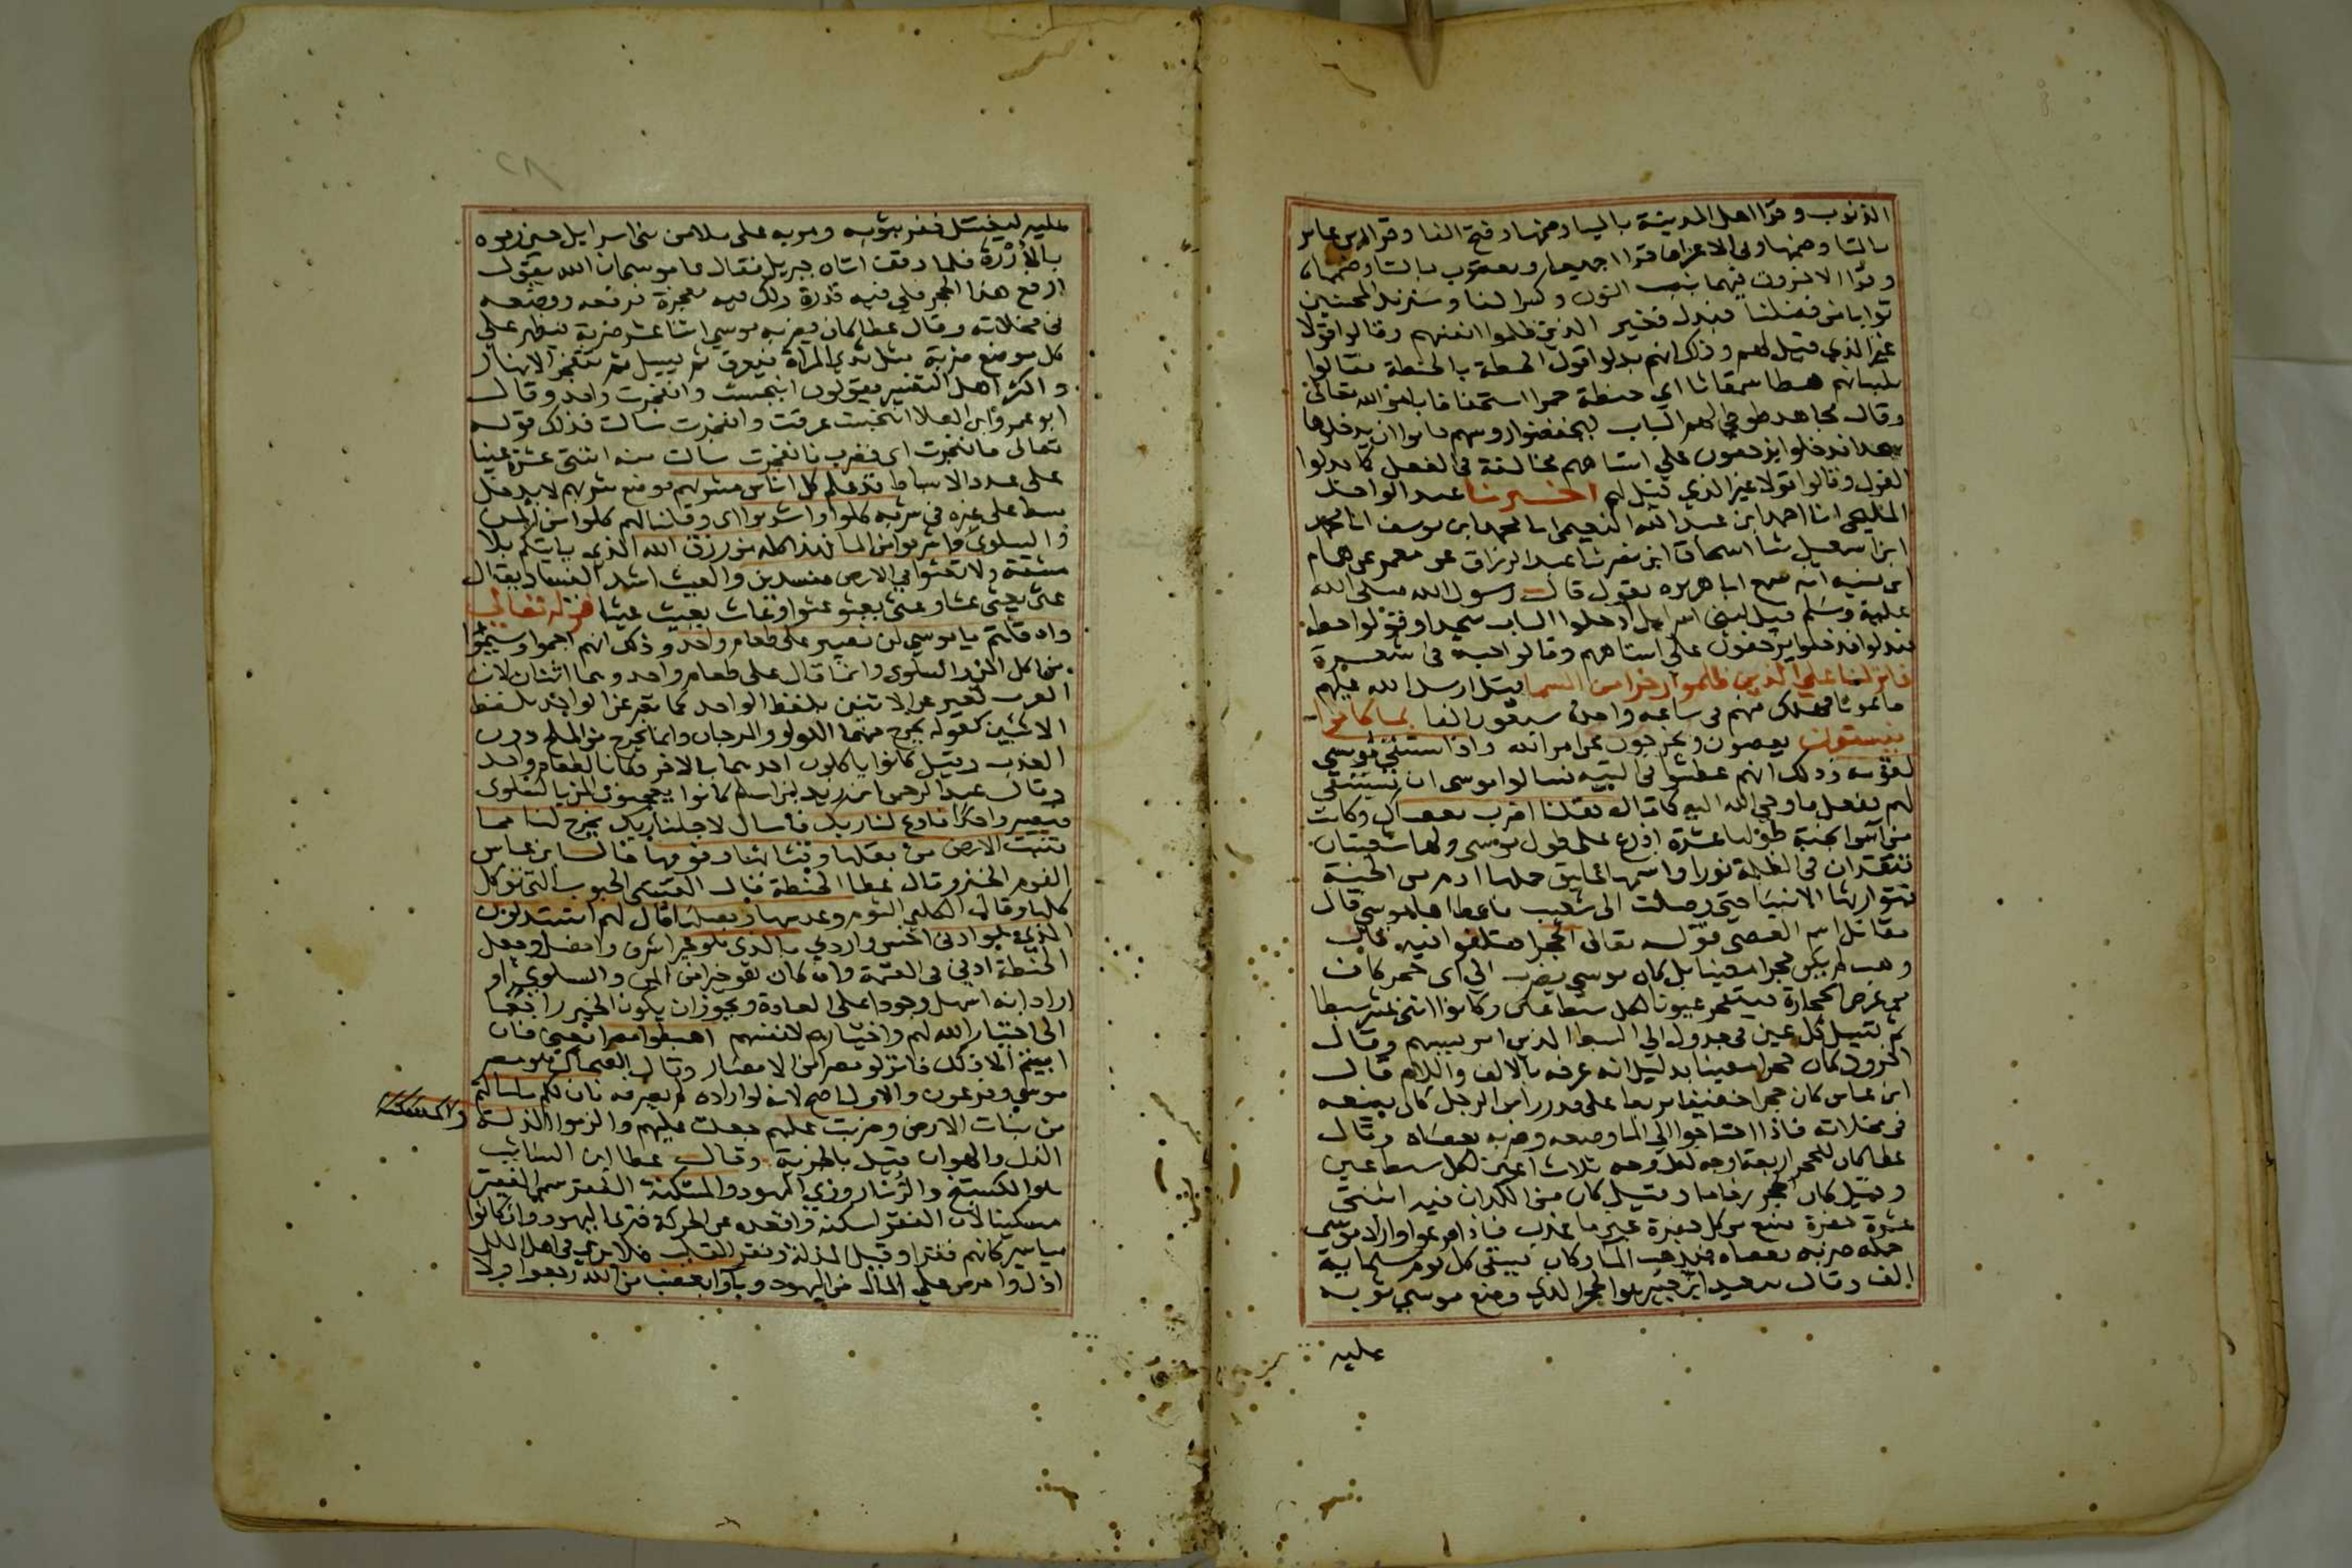 الذنوب وقرا اهل المدينة بالياء وضمها وفتح الفا وقرا ابن عامر
بالتا وضمها وفي الاعراف قرا جميعا ويعقوب بالتا وضمها
وقرا الاخرون فيهما بنصب النون وكسر الفا وسنزيد المحسنين
ثوابا من فضلنا فبدل فغير الذين ظلموا انفسهم وقالوا قولا
غير الذي قيل لهم وذلك انهم بدلوا قول الحطة بالحنطة فقالوا
بلسانهم هطا سمقاثا اي حنطة حمرا استخفافا بامر الله تعالى
وقال مجاهد طوطي لهم الباب ليخفضوا روسهم فابوا ان يدخلوها
سجدا فدخلوا يزحفون علي استاههم مخالفة في الفعل كما بدلوا
القول وقالوا قولا غير الذي قيل لهم اخبرنا عبد الواحد
المليحي انا احمد ابن عبد الله النعيمي انا محمد ابن يوسف انا محمد
ابن اسمعيل ثنا اسحاق ابن نصر ثنا عبد الرزاق عن معمر عن همام
ابن منبه انه سمع ابا هريره يقول قال رسول الله صلى الله
عليه وسلم قيل لبني اسرايل ادخلوا الباب سجدا وقولوا حطة
فبدلوا فدخلوا يزحفون على استاههم وقالوا حبة في شعيرة
فانزلنا على الذين ظلموا رجزا من السما قيل ارسل الله عليهم
طاعونا فهلك منهم في ساعه واحدة سبعون الفا بما كانوا
يفسقون يعصون ويخرجون عن امر الله واذ استسقى موسى
لقومه وذلك انهم عطشوا في التيه فسالوا موسى ان يستسقي
لهم ففعل فاوحي الله اليه كما قال فقلنا اضرب بعصاك وكانت
من آس الجنة طولها عشرة اذرع على طول موسى ولها شعبتان
تتقدان في الظلمة نورا واسمها عليق حملها ادم من الجنة
فتوارثها الانبيا حتى وصلت الى شعيب فاعطاها موسى قال
مقاتل اسم العصى قوله تعالى الحجر اختلفوا فيه قال
وهب لم يكن حجرا معينا بل كان موسى يضرب اي حجر كان
من عرض الحجارة فينفجر عيونا لكل سبط عين وكانوا اثني عشر سبطا
ثم تسيل كل عين في جدول الي السبط الذين امر بسقيهم وقال
اخرون كان حجرا معينا بدليل انه عرفه بالالف واللام قال
ابن عباس كان حجرا خفيفا مربعا على قدر راس الرجل كان يضعه
في مخلاته فاذا احتاجوا الي الما وضعه وضربه بعصاه وقال
عطا كان للحجر اربعة اوجه لكل وجه ثلاث اعين لكل سبط عين
وقيل كان الحجر رخاما وقيل كان من الكدان فيه اثنتي
عشرة حفرة ينبع من كل حفرة عين ما عذب فاذا فرغوا واراد موسى
حمله ضربه بعصاه فيذهب الما وكان يسقي كل يوم ستماية
الف وقال سعيد ابن جبير هو الحجر الذي وضع موسى ثوبه
عليه
٢٨
عليه ليغتسل ففر بثوبه ومر به على ملا من بني اسرايل حين رموه
بالأدرة فلما وقف اتاه جبريل فقال يا موسى ان الله يقول
ارفع هذا الحجر فلي فيه قدرة ولك فيه معجزة فرفعه ووضعه
في مخلاته وقال عطا كان يضربه موسى اثنا عشر ضربة فيظهر على
كل موضع ضربة مثل ثدي المراة فيعرق ثم يسيل ثم تنفجر الانهار
واكثر اهل التفسير يقولون انبجست وانفجرت واحد وقال
ابو عمرو ابن العلا انبجست عرقت وانفجرت سالت فذلك قوله
تعالى فانفجرت اى فضرب فانفجرت سالت منه اثنتى عشرة عينا
على عدد الاسباط قد علم كل اناس مشربهم موضع شربهم لا يدخل
سبط على غيره في شربه كلوا واشربوا اى وقلنا لهم كلوا من المن
والسلوى واشربوا من الما فهذا كله من رزق الله الذي ياتيكم بلا
مشقة ولا تعثوا في الارض مفسدين والعيث اشد الفساد يقال
عثى يعثى عثا وعثى يعثو عثوا وعاث يعيث عيثا قوله تعالى
واذ قلتم يا موسى لن نصبر على طعام واحد وذلك انهم اجموا وسيموا
من اكل المن والسلوى وانما قال على طعام واحد وهما اثنان لان
العرب تعبر عن الاثنين بلفظ الواحد كما تعبر عن الواحد بلفظ
الاثنين كقوله يخرج منهما اللولو والمرجان وانما يخرج من الملح دون
العذب وقيل كانوا ياكلون احدهما بالاخر فكانا كطعام واحد
وقال عبد الرحمن ابن زيد بن اسلم كانوا يعجنون المن بالسلوى
فيصير واحدا فادع لنا ربك فاسال لاجلنا ربك يخرج لنا مما
تنبت الارض من بقلها وقثائها وفومها قال ابن عباس
الفوم الخبز وقال عطا الحنطة قال القتيبي الحبوب التي توكل
كلها وقال الكلبي الثوم وعدسها وبصلها قال لهم اتستبدلون
الذي هو ادنى اخس واردي بالذي هو خير اشرف وافضل وجعل
الحنطة ادنى في القيمة وان كان هو خيرا من المن والسلوى او
اراد انه اسهل وجودا على العادة ويجوز ان يكون الخير راجعا
الى اختيار الله لهم واختيارهم لانفسهم اهبطوا مصرا يعني فان
ابيتم الا ذلك فانزلو مصرا من الامصار وقال الضحاك هو مصر
موسى وفرعون والاول اصح لانه لو اراده لم يصرفه فان لكم ما سالتم
من نبات الارض وضربت عليهم جعلت عليهم والزموا الذلة والمسكنة
الذل والهوان قيل بالجزية وقال عطا ابن السايب
هو الكستيج والزنار وزي اليهود والمسكنة الفقر سمي الفقير
مسكينا لان الفقر اسكنه واقعده عن الحركة فترى اليهود وان كانوا
مياسير كانهم فقرا وقيل المذلة فقر القلب فلا ترى في اهل الملل
اذل واحرص على المال من اليهود وبآوا بغضب من الله رجعوا ولا